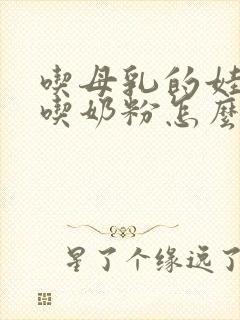 喫母乳的娃
喫奶粉怎麼
星了个缘远了